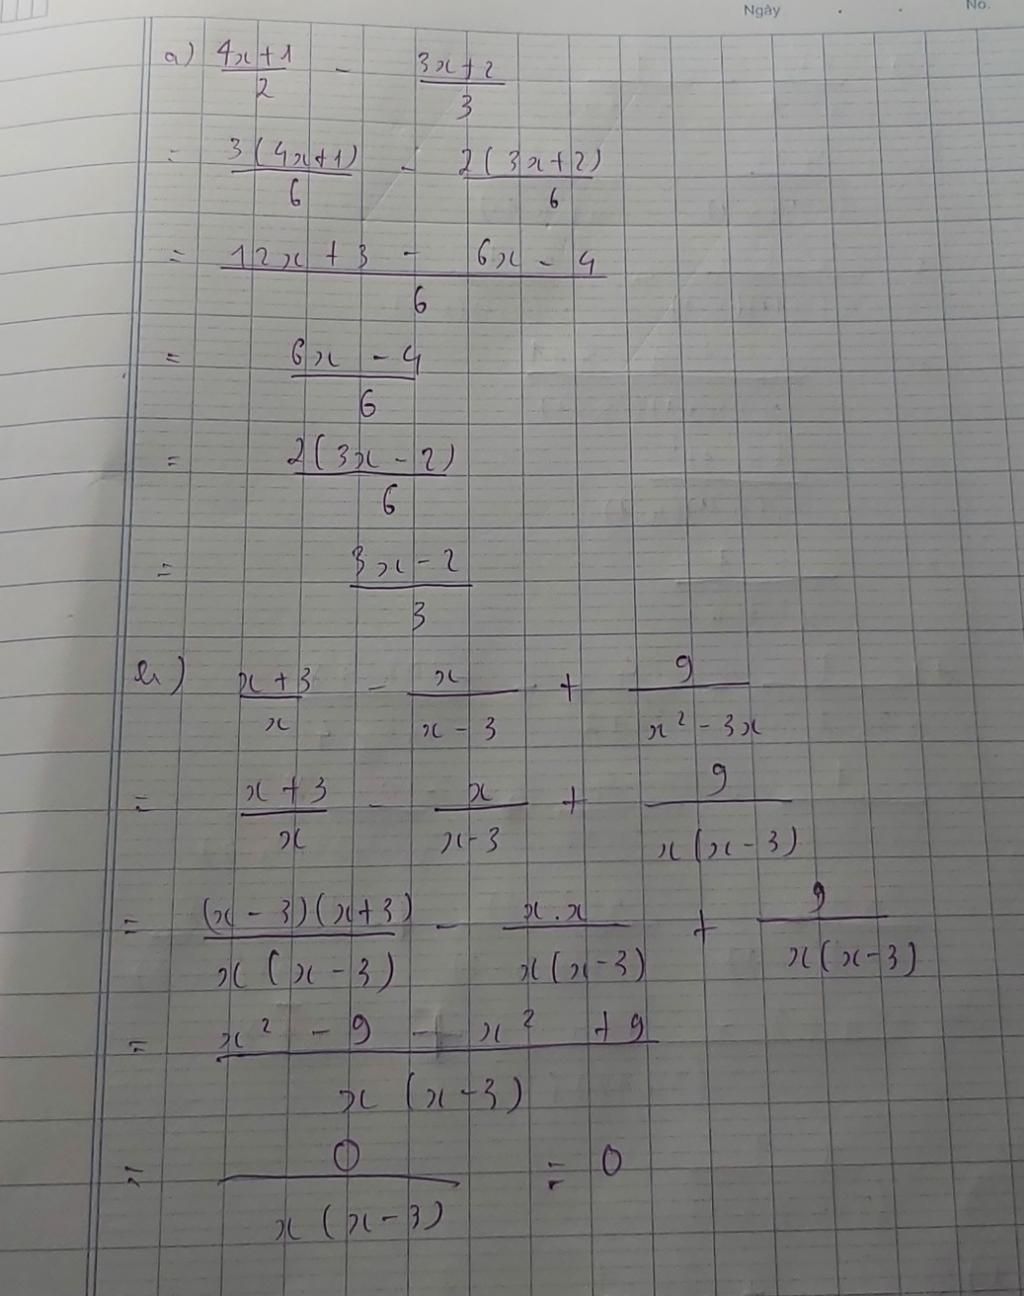 Ngày . . No.
a) \frac{4x+1}{2} - \frac{3x+2}{3}
= \frac{3(4x+1)}{6} - \frac{2(3x+2)}{6}
= \frac{12x+3-6x-4}{6}
= \frac{6x-4}{6}
= \frac{2(3x-2)}{6}
= \frac{3x-2}{3}
b) \frac{x+3}{x} - \frac{x}{x-3} + \frac{9}{x^2-3x}
= \frac{x+3}{x} - \frac{x}{x-3} + \frac{9}{x(x-3)}
= \frac{(x-3)(x+3)}{x(x-3)} - \frac{x.x}{x(x-3)} + \frac{9}{x(x-3)}
= \frac{x^2-9-x^2+9}{x(x-3)}
= \frac{0}{x(x-3)} = 0